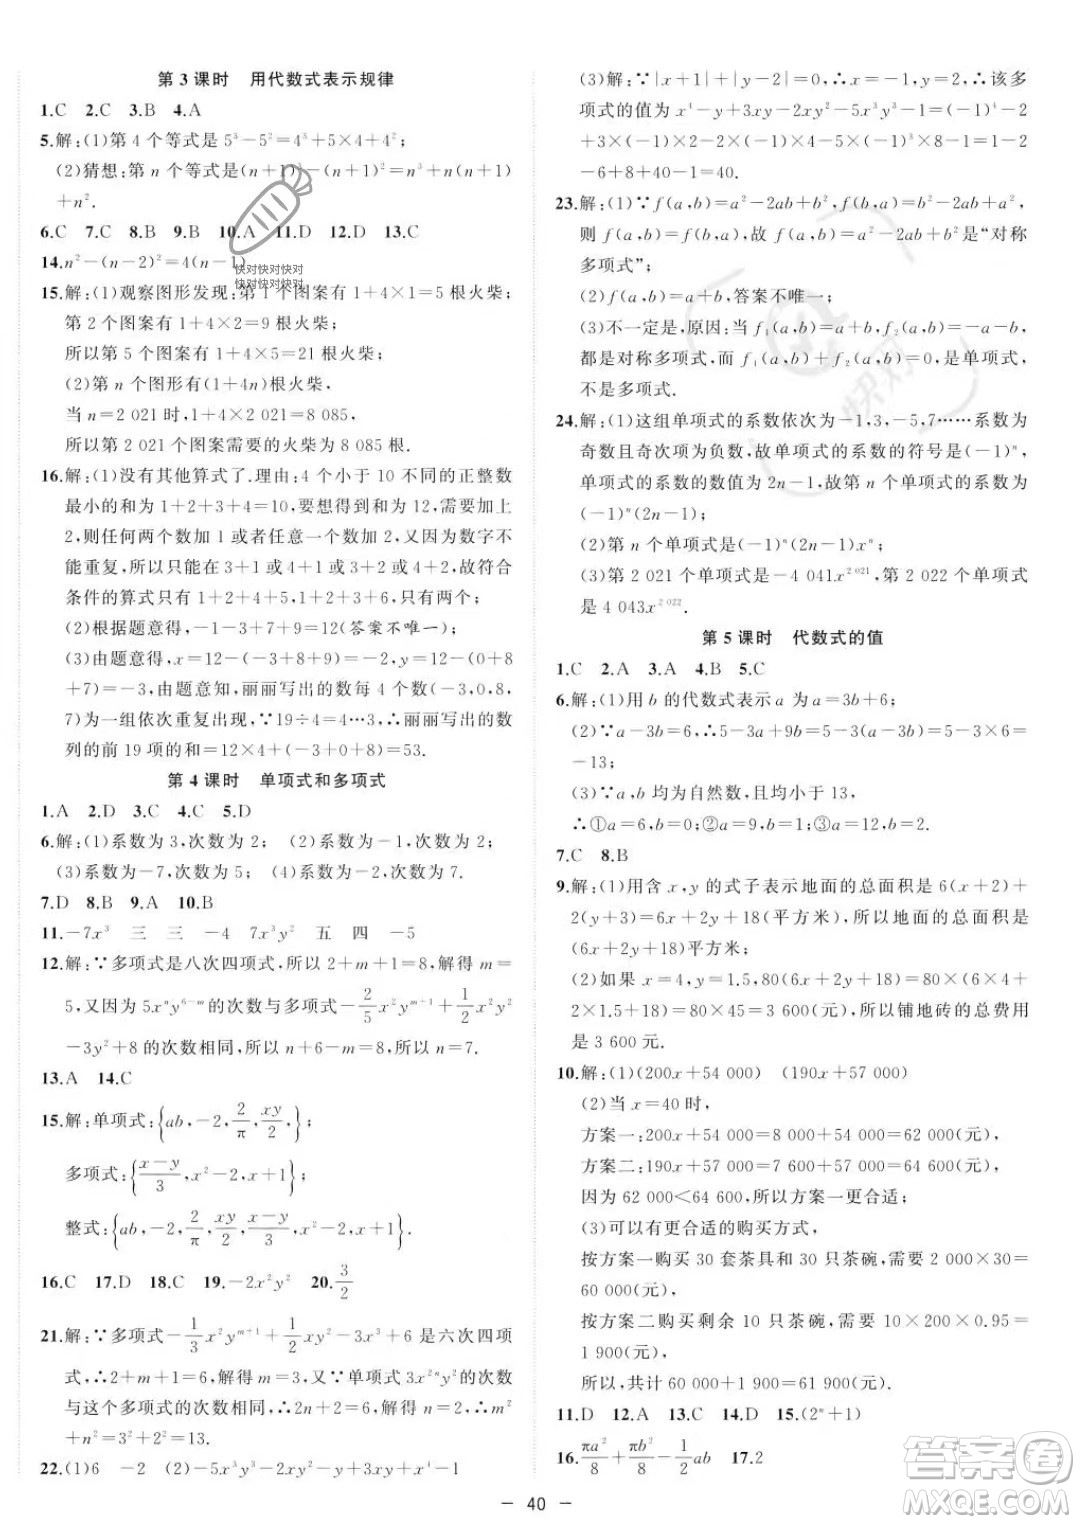 第 3 课时　用代数式表示规律
1.C　2.C　3.B　4.A
5.解:(1)第 4 个等式是 5³－5²＝4³＋5×4＋4²;
(2)猜想:第 n 个等式是(n＋1)³－(n＋1)²＝n³＋n(n＋1)
＋n².
6.C　7.C　8.B　9.B　10.A　11.D　12.D　13.C
14.n²－(n－2)²＝4(n－1)
快对快对快对
快对快对快对
15.解:(1)观察图形发现:第 1 个图案有 1＋4×1＝5 根火柴;
第 2 个图案有 1＋4×2＝9 根火柴;
所以第 5 个图案有 1＋4×5＝21 根火柴;
(2)第 n 个图形有(1＋4n)根火柴,
当 n＝2 021 时,1＋4×2 021＝8 085,
所以第 2 021 个图案需要的火柴为 8 085 根.
16.解:(1)没有其他算式了.理由:4 个小于 10 不同的正整数
最小的和为 1＋2＋3＋4＝10,要想得到和为 12,需要加上
2,则任何两个数加 1 或者任意一个数加 2,又因为数字不
能重复,所以只能在 3＋1 或 4＋1 或 4＋2,故符合
条件的算式只有 1＋2＋3＋6 和 1＋2＋4＋5 两个;
(2)根据题意得,－1－3＋7＋9＝12(答案不唯一);
(3)由题意得,x＝12－12－(－3)＋0
＝－(－3)＝3,由题意知,丽丽写出的数每 4 个数(－3,0,8,
7)为一组依次重复出现,∵19÷4＝4…3,∴丽丽写出的数
列的前 19 项的和＝12×4＋(－3＋0＋8)＝53.
第 4 课时　单项式和多项式
1.A　2.D　3.C　4.C　5.D
6.解:(1)系数为 3,次数为 2;　(2)系数为－1,次数为 2;
(3)系数为－7,次数为 5;　(4)系数为 2,次数为 7.
7.D　8.D　9.A　10.B
11.－7x³　三　三　－4　7x³y²　五　四　－5
12.解:∵多项式是八次四项式,所以 2＋m＋1＝8,解得 m＝
5,又因为 5xⁿy⁶⁻ᵐ的次数与多项式－2/5x²yᵐ⁺¹＋1/2x²y²
－3y²＋8 的次数相同,所以 n＋6－m＝8,所以 n＝7.
13.A　14.C
15.解:单项式:{ab,－2,2/π,xy/2,};
多项式:{(x－y)/3,x²－2,x＋1};
整式:{ab,－2,2/π,xy/2,(x－y)/3,x²－2,x＋1}.
16.C　17.D　18.C　19.－2x²y²　20.3/2
21.解:∵多项式－1/3x²yᵐ⁺¹＋1/2xy²－3x³＋6 是六次四项
式,∴2＋m＋1＝6,∴m＝3,又∵单项式 3x²ⁿy² 的次数
与这个多项式的次数相同,∴2n＋2＝6,∴n＝2,∴m²
＋n²＝3²＋2²＝13.
22.(1)6　－2　(2)－5x³y³＋x⁴－2xy＋3xy－1
(3)解:∵|x＋1|＋|y－2|＝0,∴x＝－1,y＝2,∴该多
项式的值为 x⁴－y＋3xy－2xy²－5x³y³－1＝(－1)⁴－2
＋3×(－1)×2－2×(－1)×4－5×(－1)³×8－1＝1
－2－6＋8＋40－1＝40.
23.解:(1)∵f(a,b)＝a²－2ab＋b²,f(b,a)＝b²－2ab＋a²,
则 f(a,b)＝f(b,a),故 f(a,b)＝a²－2ab＋b² 是“对称
多项式”;
(2)f(a,b)＝a＋b,答案不唯一;
(3)不一定是,原因:当 f₁(a,b)＝a＋b,f₂(a,b)＝－a－b,
都是对称多项式,而 f₁(a,b)＋f₂(a,b)＝0,是单项式,
不是多项式.
24.解:(1)这组单项式的系数依次为－1,3,－5,7……系数为
奇数且奇次项为负数,故单项式的系数的符号是(－1)ⁿ,
单项式的系数的数值为 2n－1,故第 n 个单项式的系数为
(－1)ⁿ(2n－1);
(2)第 n 个单项式是(－1)ⁿ(2n－1)xⁿ;
(3)第 2 021 个单项式是－4 041x²⁰²¹,第 2 022 个单项式
是 4 043x²⁰²².
第 5 课时　代数式的值
1.C　2.A　3.A　4.B　5.C
6.解:(1)用 b 的代数式表示 a 为 a＝3b＋6;
(2)∵a－3b＝6,∴5－3a＋9b＝5－3(a－3b)＝5－3×6＝
－13;
(3)∵a,b 均为自然数,且均小于 13,
∴①a＝6,b＝0;②a＝9,b＝1;③a＝12,b＝2.
7.C　8.B
9.解:(1)用含 x,y 的式子表示地面的总面积是 6(x＋2)＋
2(y＋3)＝6x＋2y＋18(平方米),所以地面的总面积是
(6x＋2y＋18)平方米;
(2)如果 x＝4,y＝1.5,80(6x＋2y＋18)＝80×(6×4＋
2×1.5＋18)＝80×45＝3 600(元),所以铺地砖的总费用
是 3 600元.
10.解:(1)(200x＋54 000)　(190x＋57 000)
(2)当 x＝40 时,
方案一:200x＋54 000＝8 000＋54 000＝62 000(元),
方案二:190x＋57 000＝7 600＋57 000＝64 600(元),
因为 62 000＜64 600,所以方案一更合适;
(3)可以有更合适的购买方式,
按方案一购买 30 套茶具和 30 只茶碗,需要 2 000×30＝
60 000(元),
按方案二购买剩余 10 只茶碗,需要 10×200×0.95＝
1 900(元),
所以,共计 60 000＋1 900＝61 900(元).
11.D　12.A　13.C　14.D　15.(2ⁿ＋1)
16.πa²/8＋πb²/8－1/2ab　17.2
－ 40 －
答案圈
MXQE.COM
快对